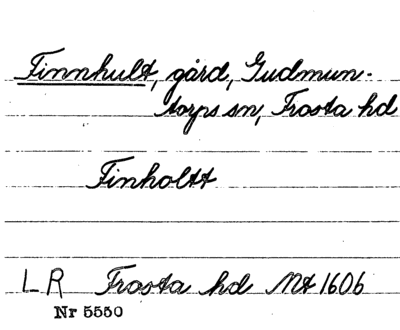 Finnhult, gård, Gudmun-
torps sn, Frosta hd
Finholtt
LR Frosta hd Mt 1606
Nr 5550